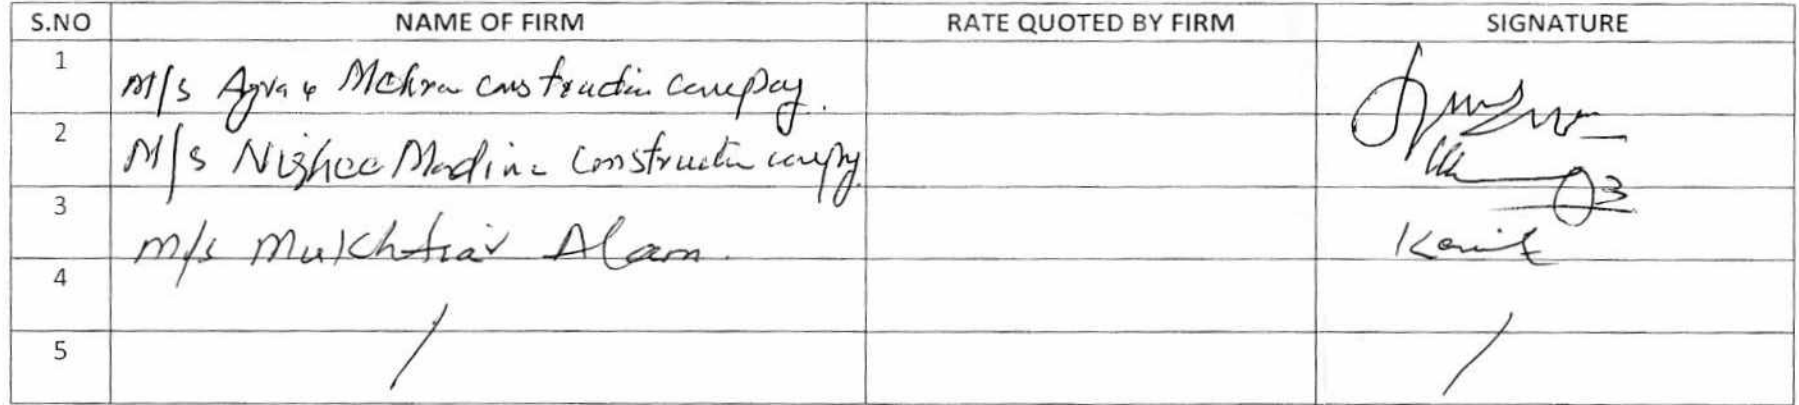 S.NO NAME OF FIRM RATE QUOTED BY FIRM SIGNATURE
1 M/s Agra & Mehran construction company.
2 M/s Madina Construction company
3 M/s Mukhtiar Alam.
4
5